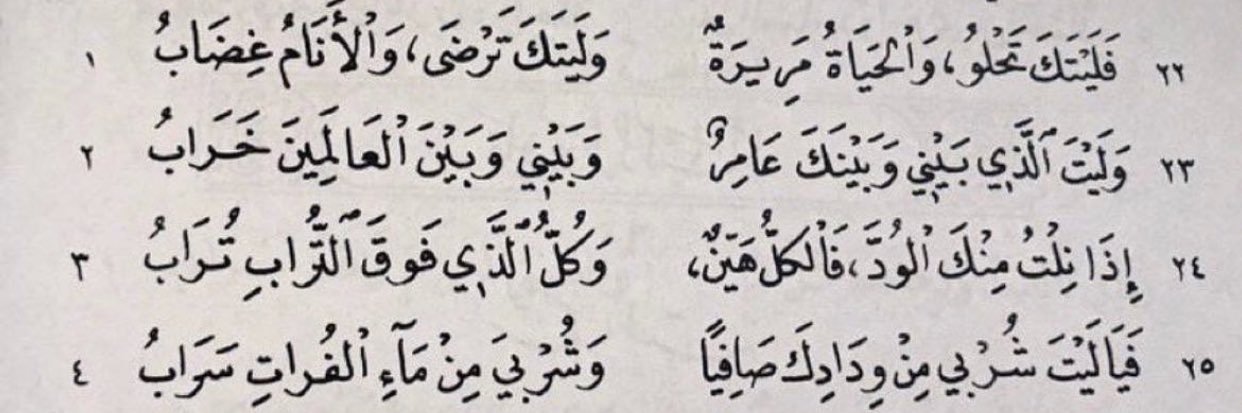 ٢٢ فَلَيْتَكَ تَحْلُو، وَالْحَيَاةُ مَرِيرَةٌ وَلَيْتَكَ تَرْضَى، وَالْأَنَامُ غِضَابُ ١
٢٣ وَلَيْتَ ٱلَّذِي بَيْنِي وَبَيْنَكَ عَامِرٌ وَبَيْنِي وَبَيْنَ ٱلْعَالَمِينَ خَرَابُ ٢
٢٤ إِذَا نِلْتُ مِنْكَ ٱلْوُدَّ، فَٱلْكلُّ هَيّنٌ، وَكُلُّ ٱلَّذِي فَوقَ ٱلتُّرابِ تُرَابُ ٣
٢٥ فَيَا لَيْتَ شُرْبي مِنْ وِدَادِكَ صَافِيًا وَشُرْبيَ مِنْ مَآءِ ٱلْفُراتِ سَرَابُ ٤